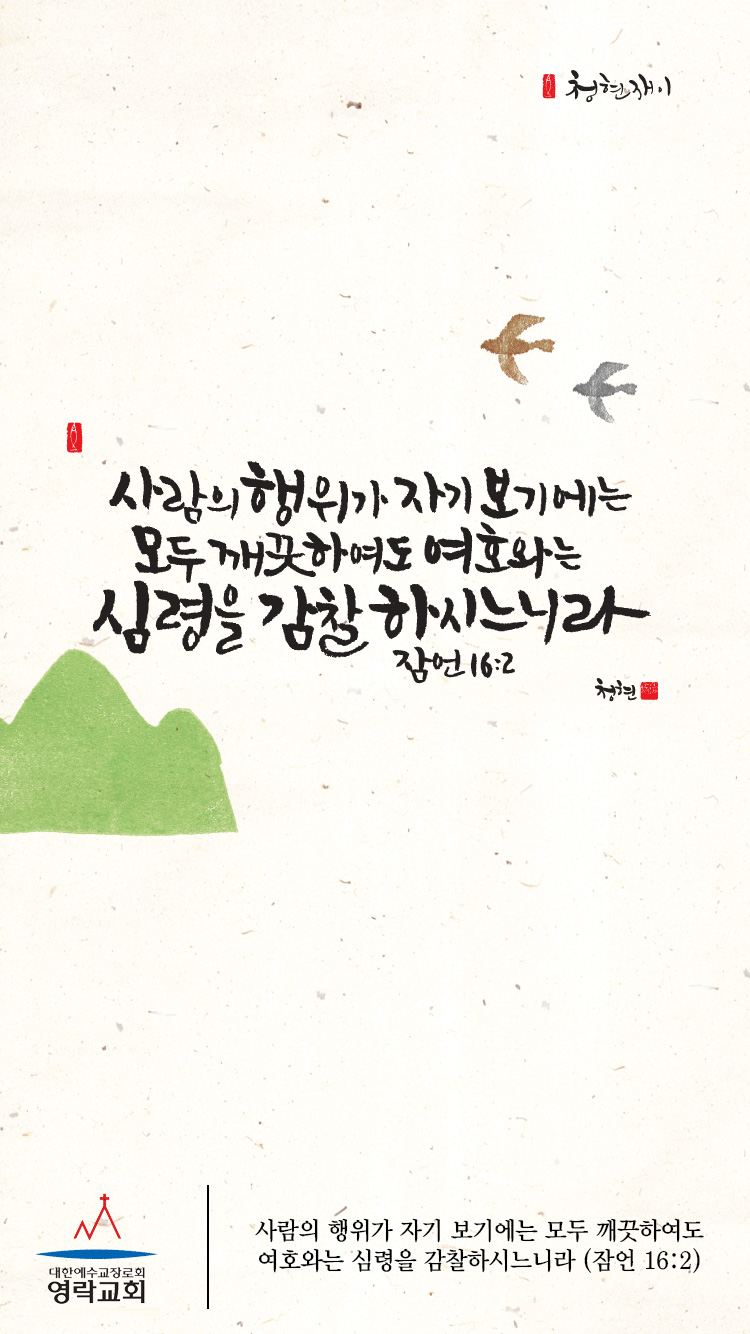 청현재이
사람의 행위가 자기 보기에는
모두 깨끗하여도 여호와는
심령을 감찰 하시느니라
잠언 16:2
청현
대한예수교장로회
영락교회
사람의 행위가 자기 보기에는 모두 깨끗하여도
여호와는 심령을 감찰하시느니라 (잠언 16:2)